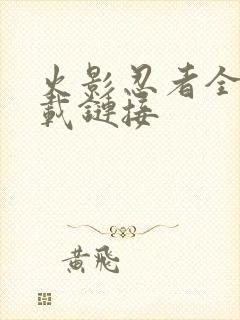 火影忍者全
載鏈接
黃飛